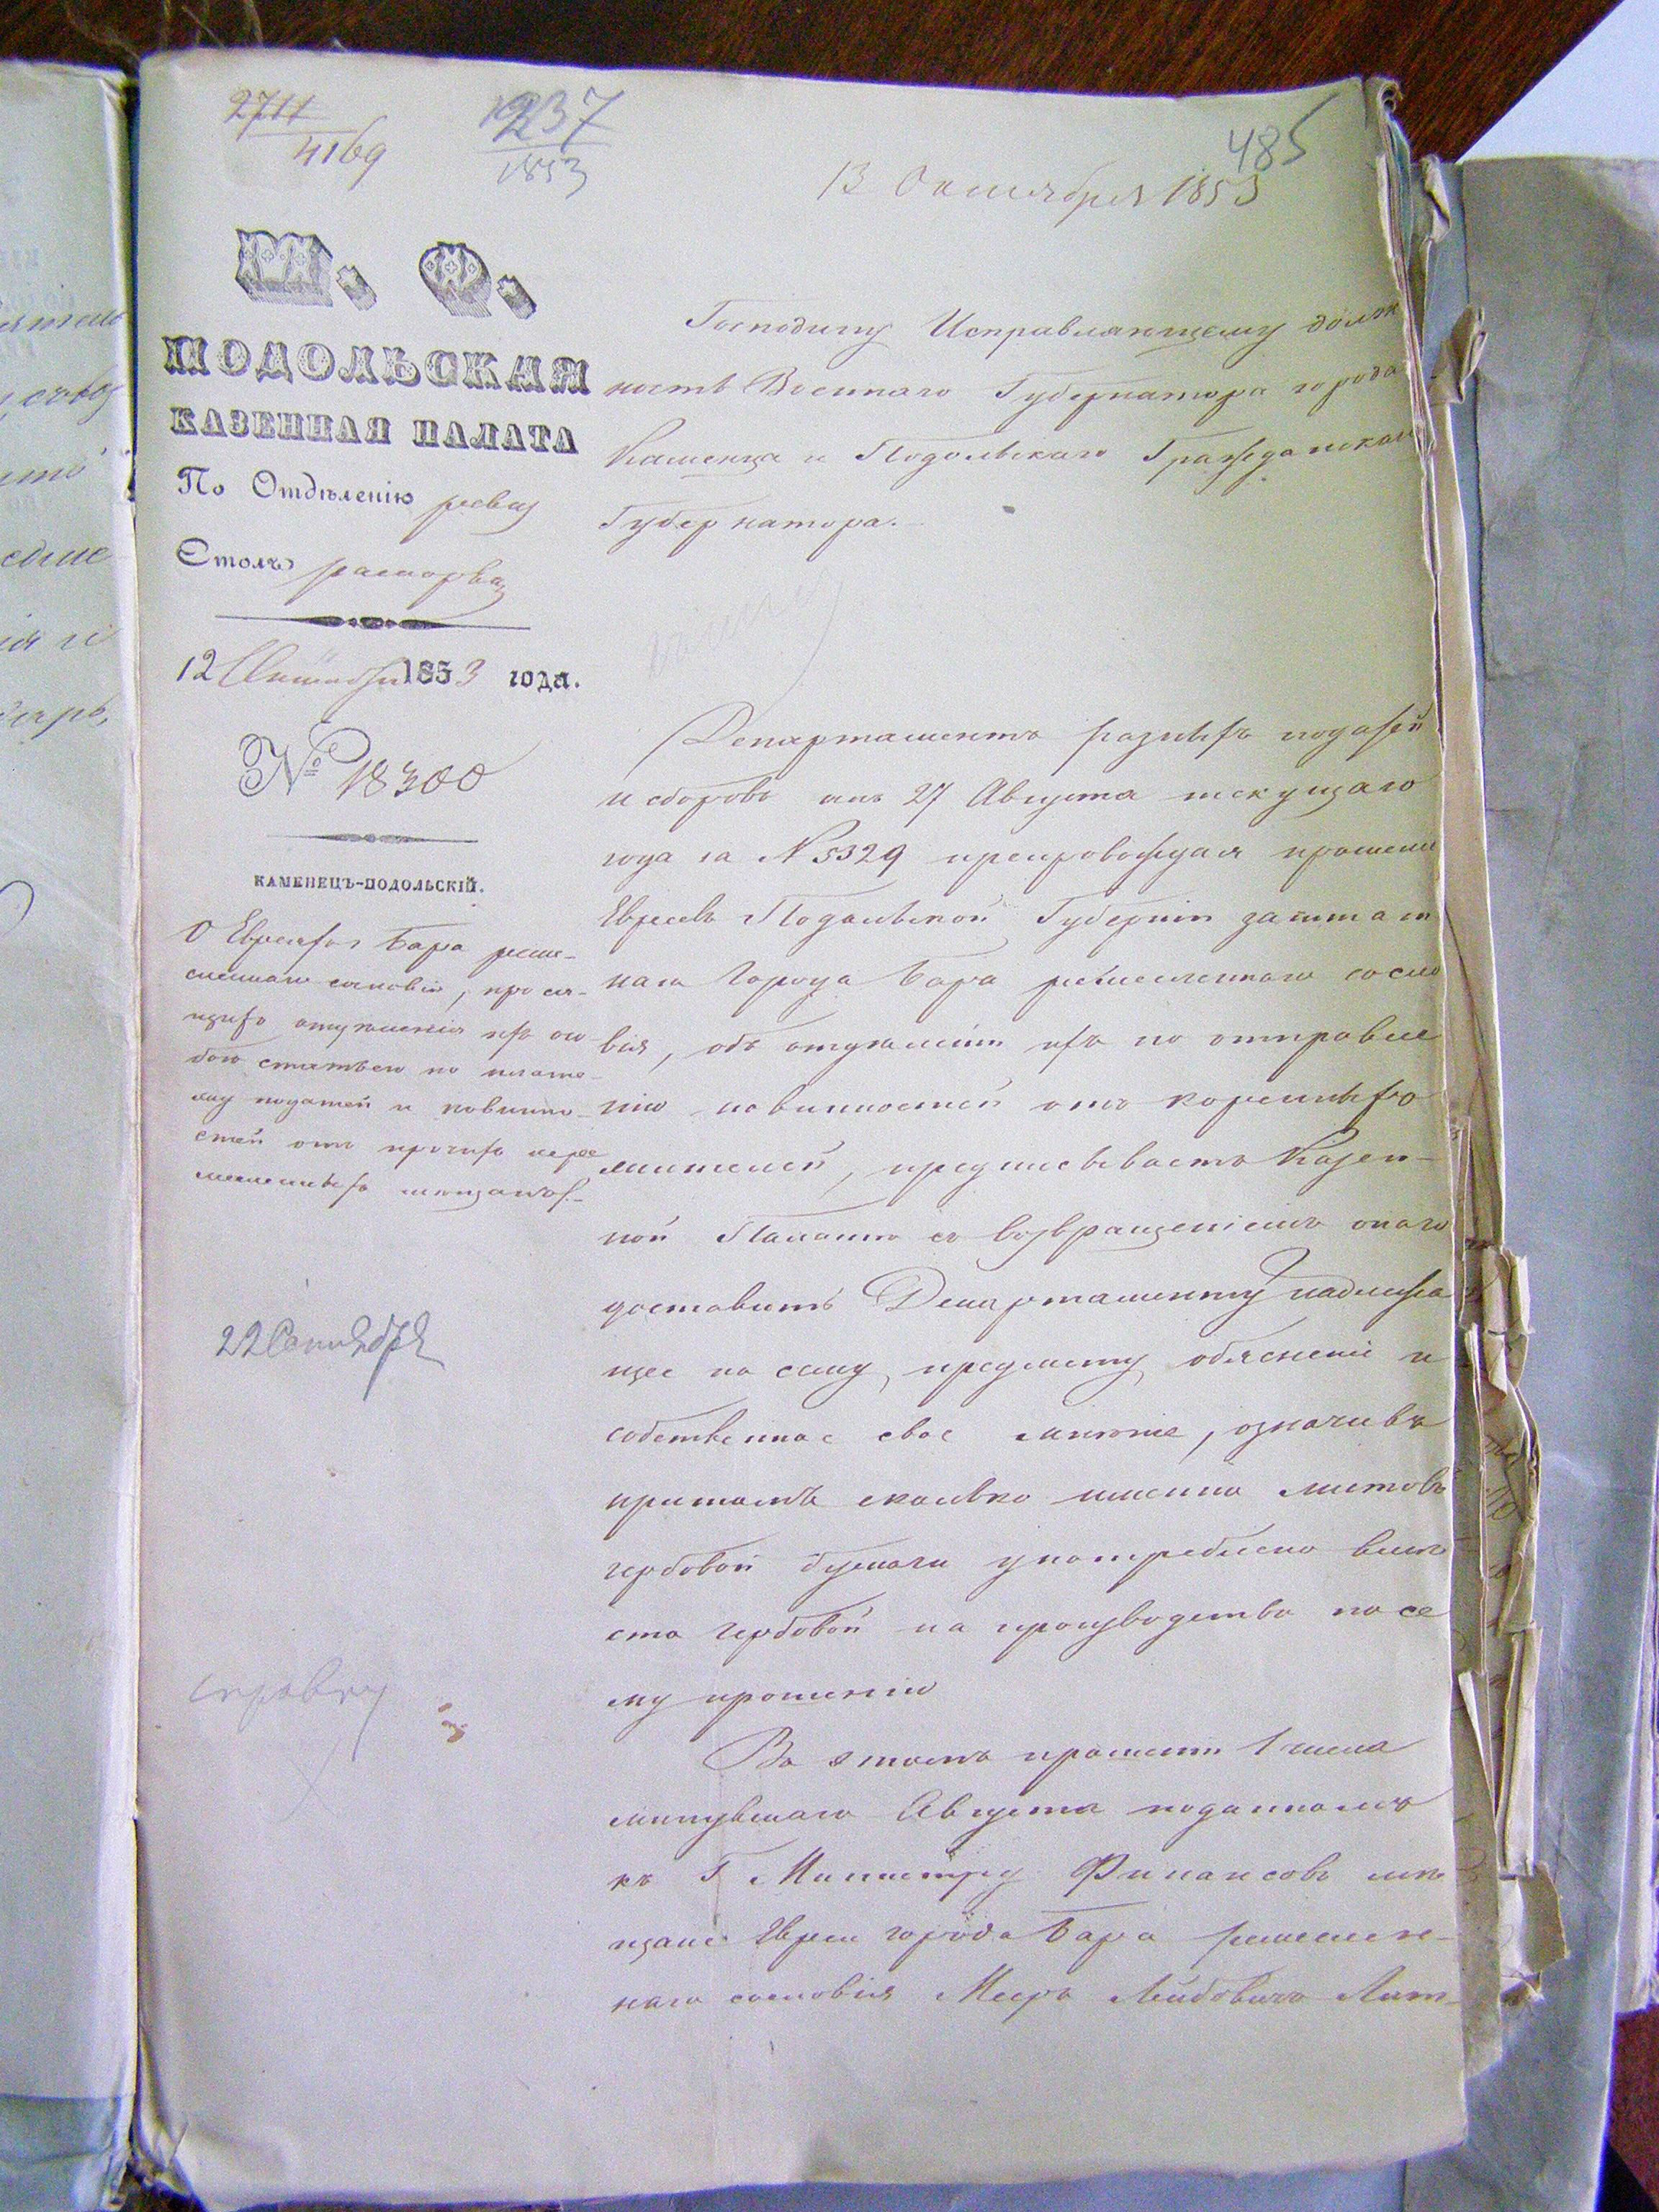 2711
4169
1237
1853
485
13 Октября 1853
М. Ф.
ПОДОЛЬСКАЯ
КАЗЕННАЯ ПАЛАТА
По Отдѣленію ревиз
Столъ
12 Сентября 1853 года.
№ 18300
КАМЕНЕЦЪ-ПОДОЛЬСКІЙ.
О Евреяхъ Бара реме-
сленнаго сословія, прося-
щихъ отдѣленія ихъ осо
бою статьею по плате-
жу податей и повинно-
стей отъ прочихъ
мѣщанъ.
22 Сентября
справку
Господину Исправляющему долж
ность Военнаго Губернатора города
Каменца и Подольскаго Гражданскаго
Губернатора.
Департаментъ разныхъ податей
и сборовъ отъ 27 Августа текущаго
года за № 5329 препровождая прошеніе
Евреевъ Подольской Губерніи заштат
наго города Бара ремесленнаго сосло
вія, объ отдѣленіи ихъ по отправле
нію повинностей отъ коренныхъ
жителей, предписываетъ Казен-
ной Палатѣ съ возвращеніемъ онаго
доставить Департаменту надлежа
щее по сему предмету объясненіе и
собственное свое мнѣніе, означивъ
притомъ сколько именно листовъ
гербовой бумаги употреблено вмѣ
сто гербовой на производство по се
му прошенію
Въ этомъ прошеніи 1 числа
минувшаго Августа поданномъ
къ Г Министру Финансовъ мѣ
щане Евреи города Бара ремеслен-
наго сословія Мееръ Лейбовичъ Лит-